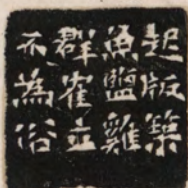 起版築
魚鹽雞
群雀立
不為俗